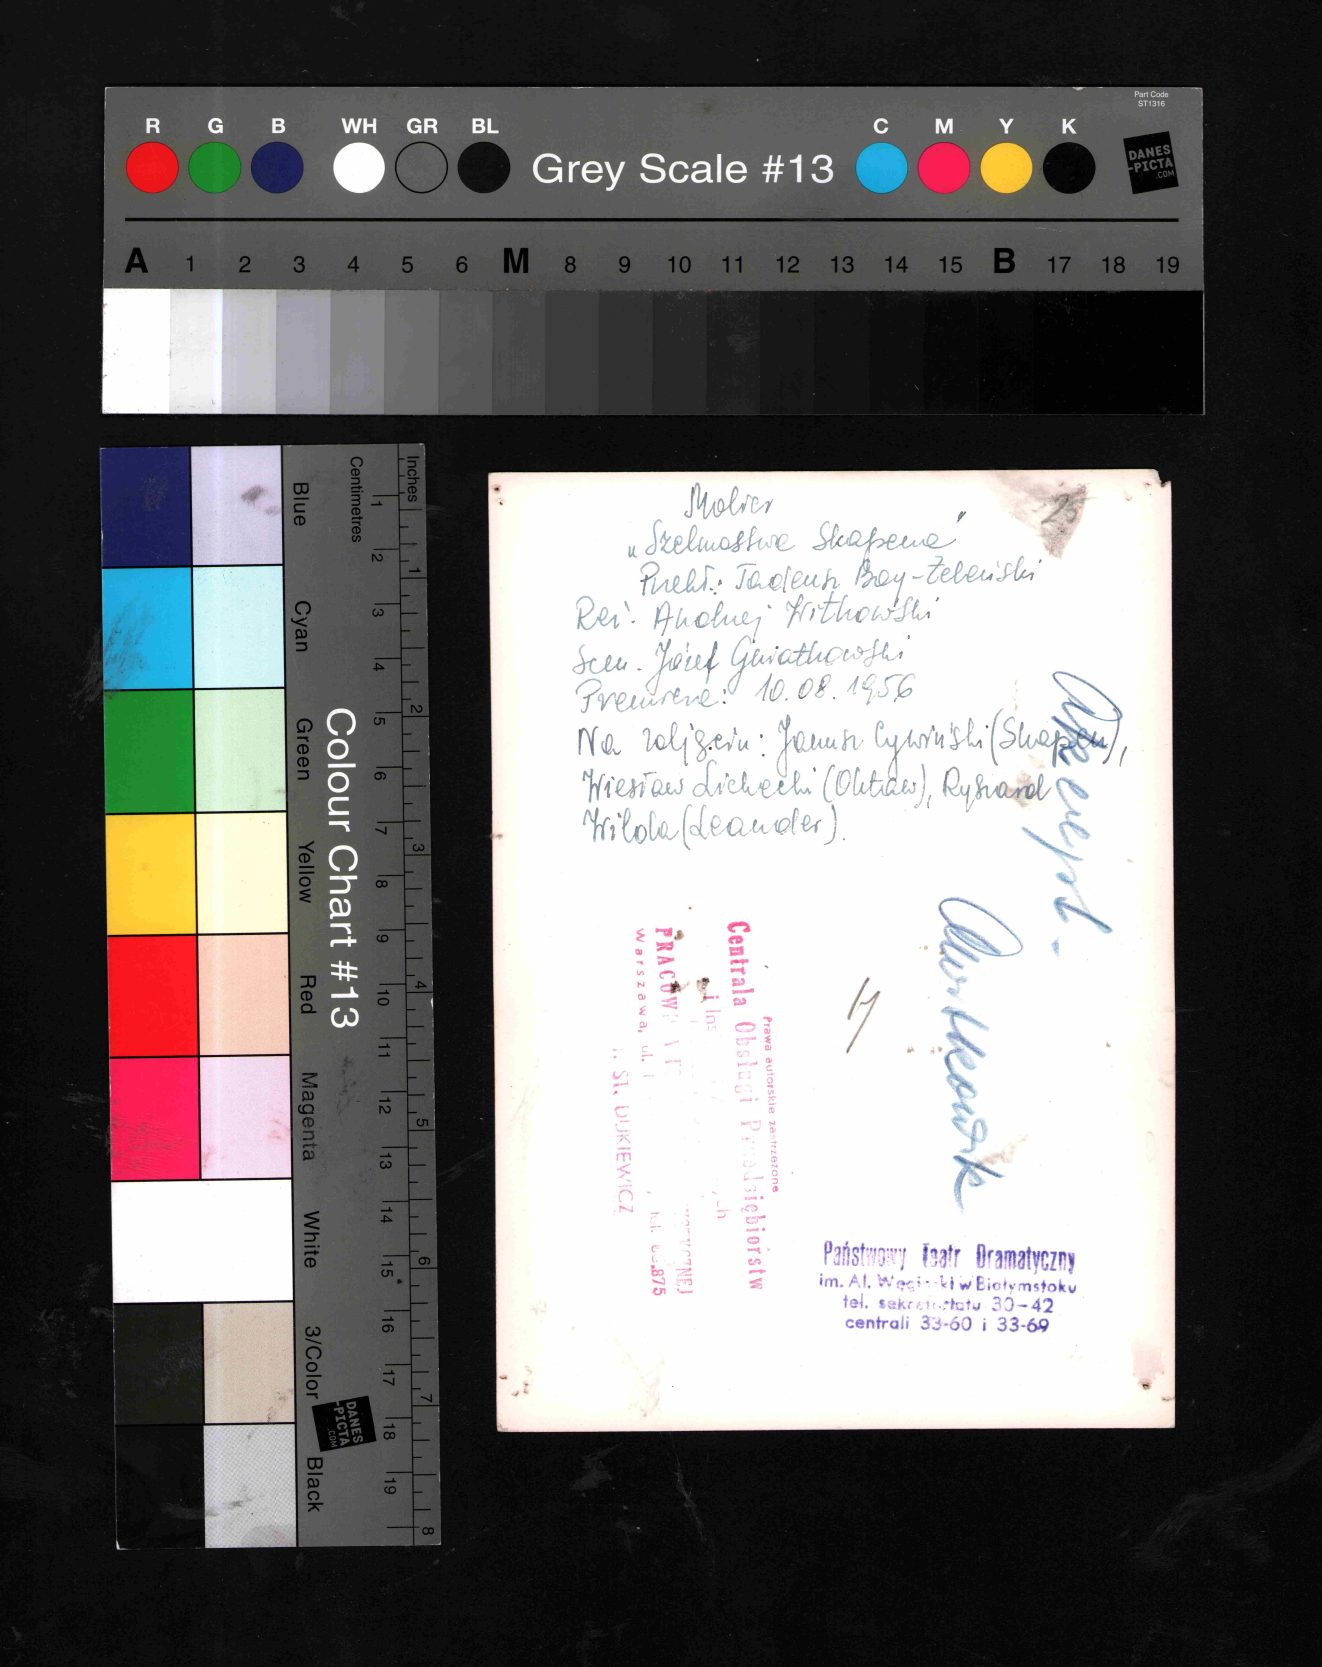 Part Code
ST1316
R G B WH GR BL
Grey Scale #13
C M Y K
DANES
-PICTA
.COM
A 1 2 3 4 5 6 M 8 9 10 11 12 13 14 15 B 17 18 19
Inches
Centimetres
1 2 3 4 5 6 7 8
1 2 3 4 5 6 7 8 9 10 11 12 13 14 15 16 17 18 19
Colour Chart #13
Blue
Cyan
Green
Yellow
Red
Magenta
White
3/Color
Black
DANES
-PICTA
.COM
Molier
"Szelmostwa Skapena"
Przekł.: Tadeusz Boy-Żeleński
Reż. Andrzej Witkowski
Scen. Józef Gwiatkowski
Premiera: 10.08.1956
Na zdjęciu: Janusz Cywiński (Skapen),
Wiesław (Oktaw), Ryszard
Wilda (Leander).
25
Prawa autorskie zastrzeżone
Centrala Obsługi Przedsiębiorstw
i
Warszawa, ul.
875
Państwowy Teatr Dramatyczny
im. Al. w Białymstoku
tel. sekretariatu 30-42
centrali 33-60 i 33-69